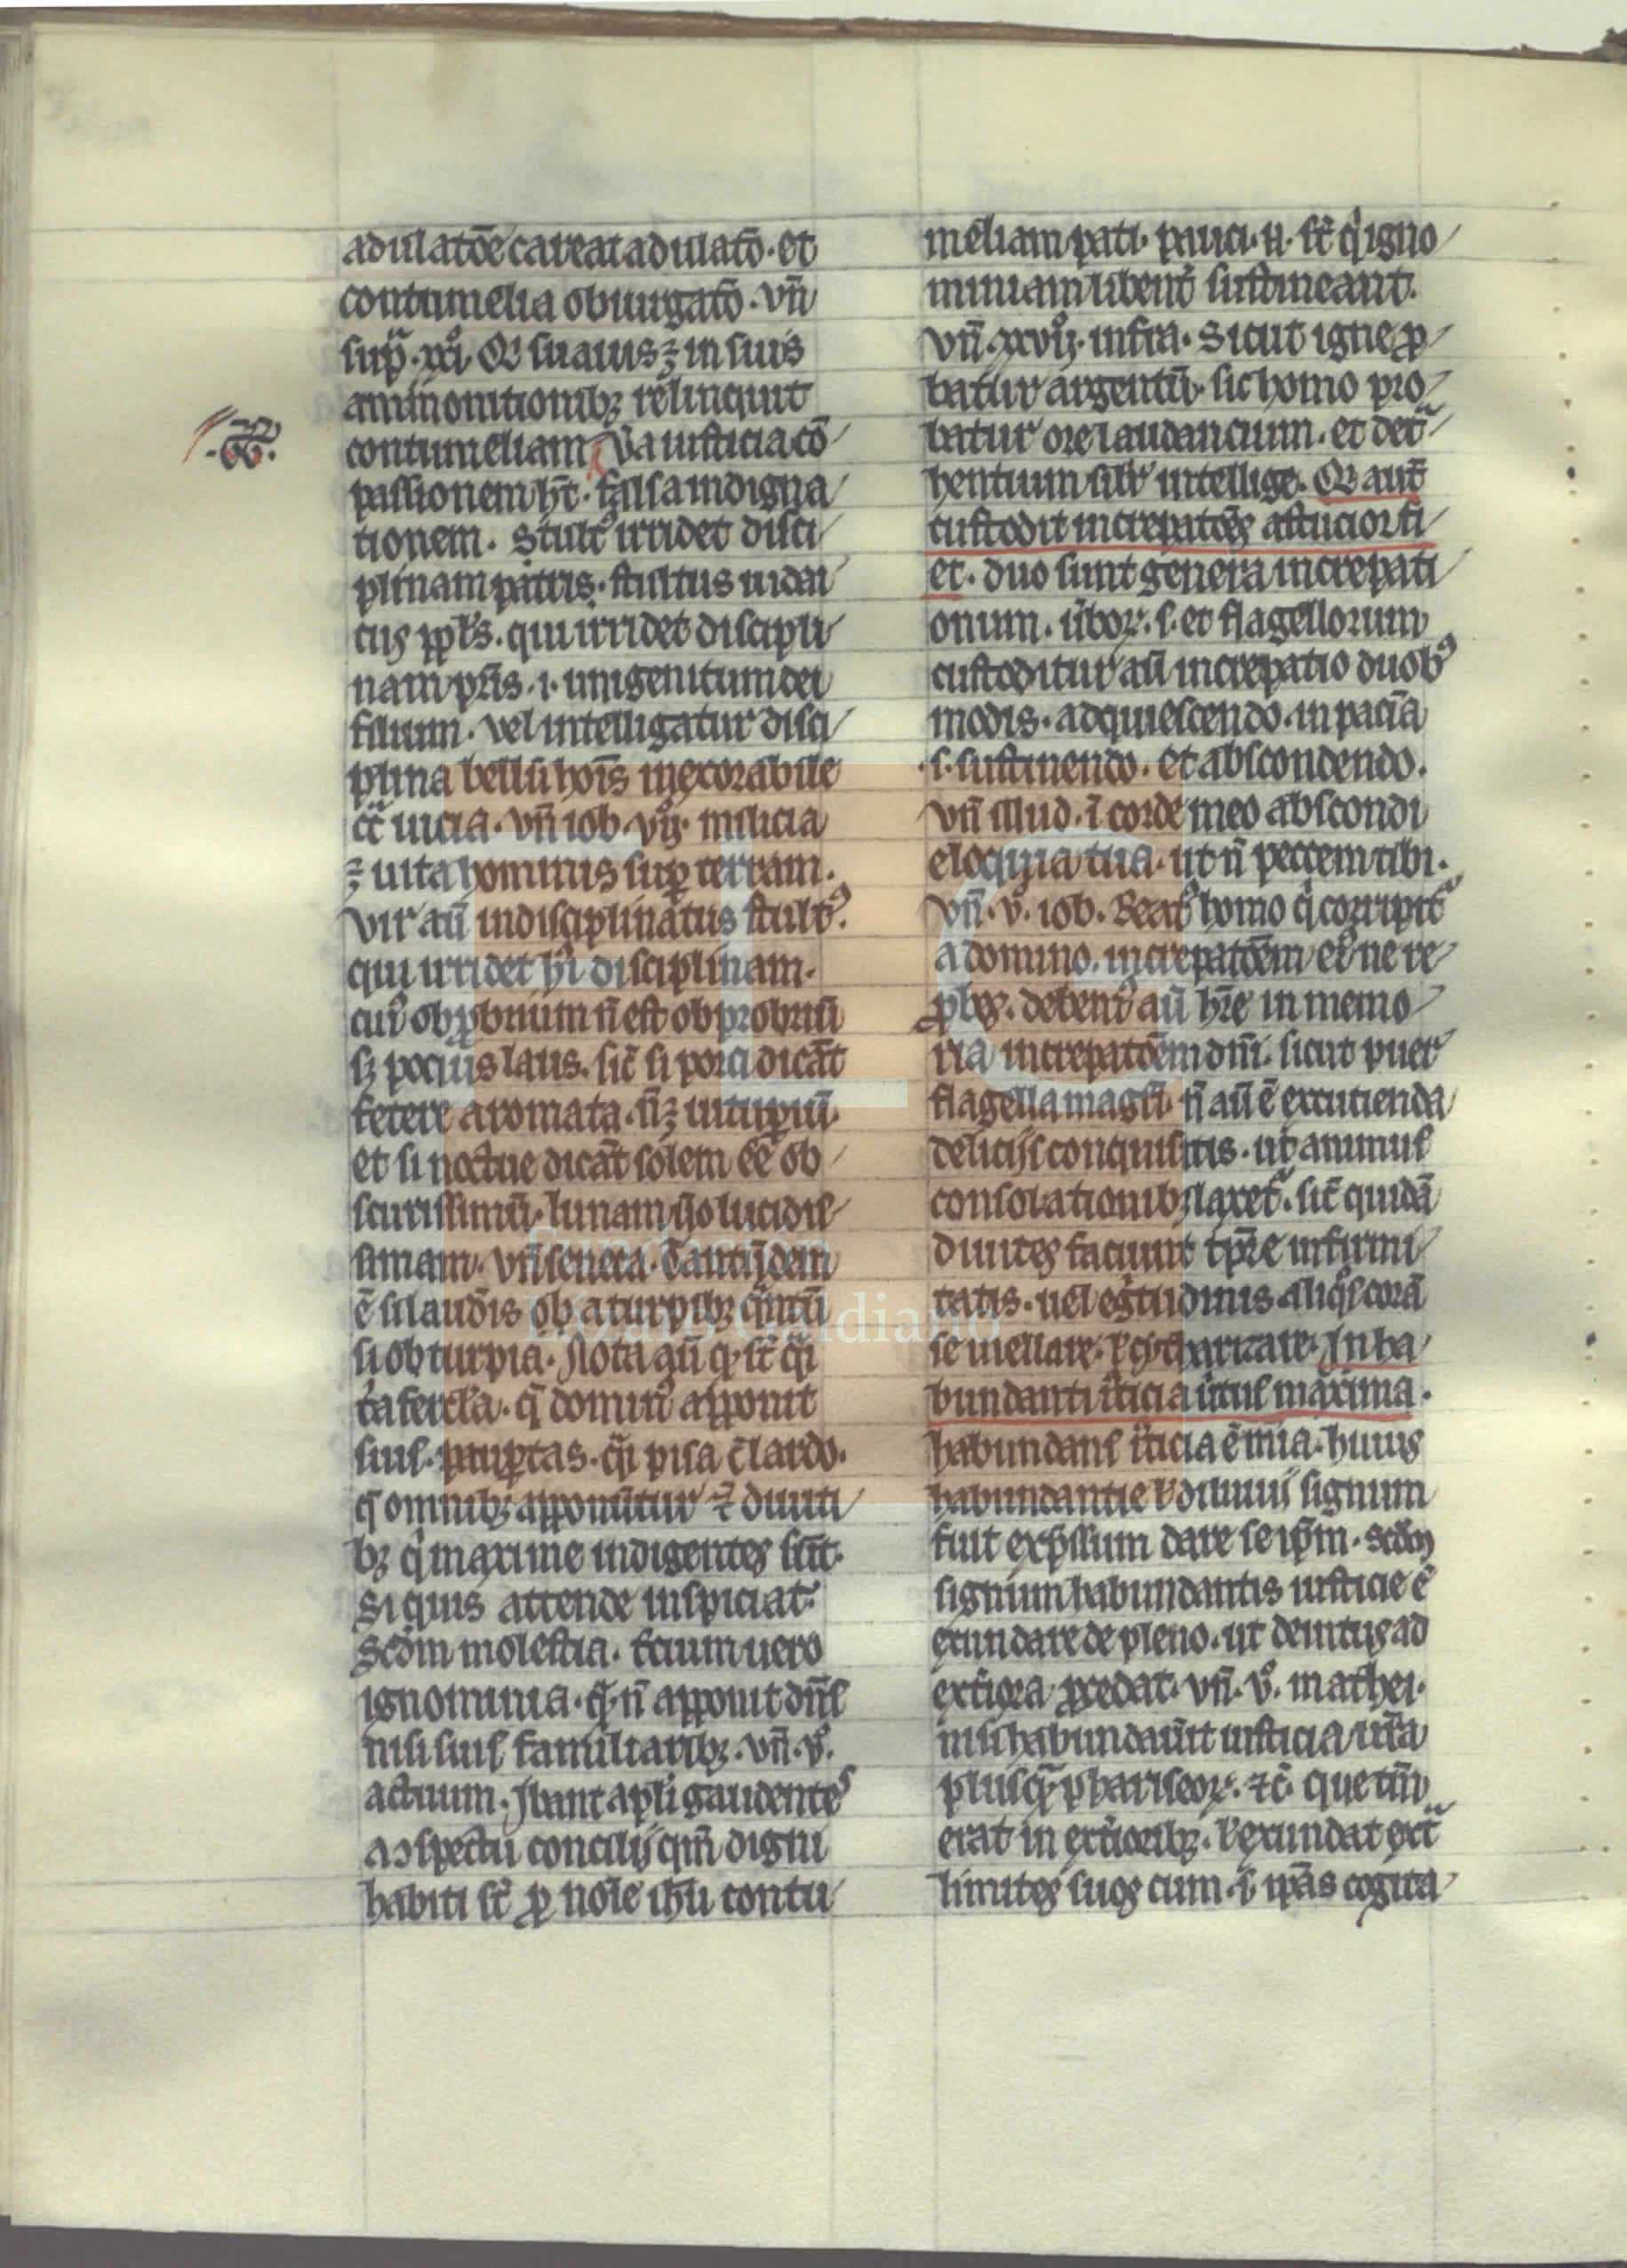 adulatōe careat adulatō · et
contumelia obiurgatō · vn̄
sup̄ · xi · Q suauis ē in suis
ammonitionibꝫ relinquit
contumeliam Va iusticia cō
passionem hꝫ · falsa indigna
tionem · Stult⁹ irridet disci
plinam patris · stultus iudai
cus ppl̄s · qui irridet discipli
nam pr̄is · i · unigenitum dei
filium · vel intelligatur disci
plina bellū hoīs inexorabile
cͣ uicia · vn̄ iob · vij · milicia
ē uita hominis sup̲ terram ·
vir aū indisciplinatus stult⁹ ·
qui irridet hͥ disciplinam ·
cui⁹ obp̱brium n̄ est obprobriū
sꝫ pocius laus · sic̄ si porci dicāt
fetere aromata · n̄ ē uitup̲iū ·
et si noctue dicāt solem eē ob
scurissimū · lunam ūo lucidis
simam · vn̄ seneca · Tantūdem
ē si laudis ob a turpibꝫ q̄ntū
si ob turpia · Nota aū
fercl̄a · q̄ domin⁹ apponit
suis · paup̲tas · q̄i pisa c̄ lardo ·
q̄ omnibꝫ apponūtur diuiti
bꝫ qͥ maxime indigentes sūt ·
Si quis attende inspiciat ·
Scd̄m molestia · tcium uero
ignominia · q̄ n̄ apponit dn̄s
nisi suis familiaribꝫ · vn̄ · v ·
actuum · Ibant apl̄i gaudentes
a ɔspectu concilij qm̄ digni
habiti st̄ ꝓ noīe ihū contu
meliam pati · pauci · n̄ · st̄ qͥ igno
miniam libent̄ sustineant ·
Vn̄ · xvij · infra · Sicut igne ꝓ
batur argentū · sic homo pro
batur ore laudancium · et detͣ
hentium silr̄ intellige · Q aut̄
custodit increpatōes astucior fi
et · duo sunt genera increpati
onum · ūboꝝ · s · et flagellorum
custoditur aū increpatio duobꝰ
modis · adquiescendo · in paciā
· s · sustinendo · et abscondendo ·
Vn̄ illud · ī corde meo abscondi
eloquia tua · ut n̄ peccem tibi ·
Vn̄ · v · iob · Beat⁹ homo qͥ corripit̄
a domino · increpatōem ei⁹ ne re
ꝓbes · debent aū hr̄e in memo
ria increpatōem dn̄i · sicut puer
flagella magr̄i · n̄ aū ē excutienda
delicijs conquisitis · ut animus
consolationibꝫ laxet̄ · sic̄ quidā
diuites faciunt tp̄re infirmi
tatis · uel egͥtudinis corā
se uiellare · uel cytharizare · In ha
bundanti iͥticia ūtus maxima ·
habundans iͥticia ē mīa · huius
habundantie uel diluuij signum
fuit expͥssum dare se ip̄m · scd̄m
signum habundantis iusticie ē
exundare de pleno · ut deintus ad
exͥora ꝓcedat · vn̄ · v · mathei ·
nisi habundaūit iusticia ur̄a
plusq̄ phariseoꝝ · ⁊c̄ · que tm̄
erat in exͥoribꝫ · uel exundat extͣ
limites suos cum · s · ip̄as cogita
Fundación
Lázaro Galdiano